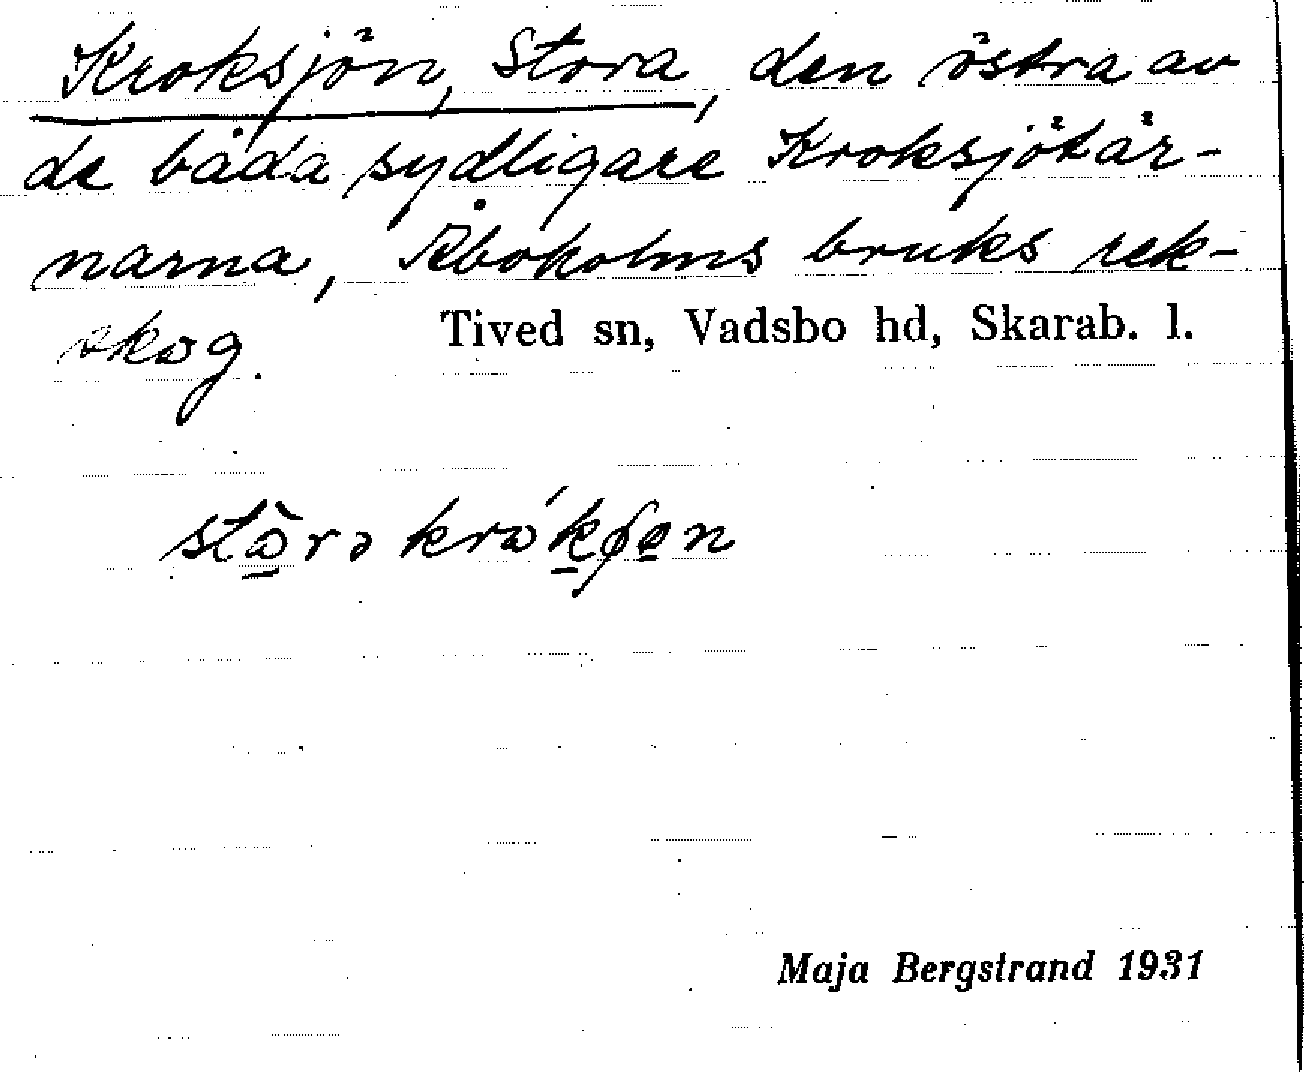 Kroksjön, Stora, den östra av
de båda sydligare Kroksjötär-
narna, Åboholms bruks rek-
skog.
Tived sn, Vadsbo hd, Skarab. l.
Maja Bergstrand 1931